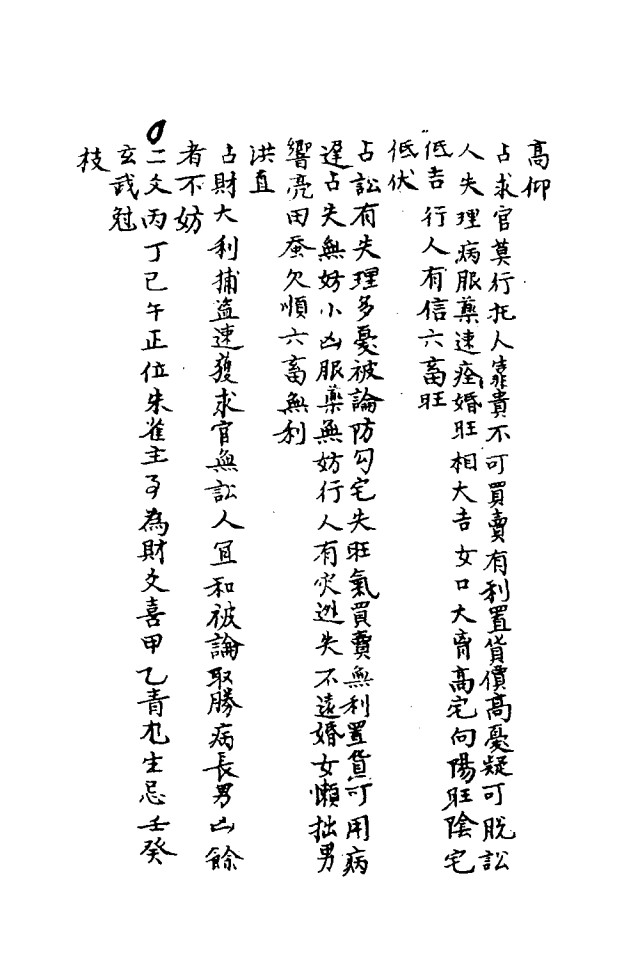 高仰
占求官莫行托人靠貴不可買賣有利置貨價高憂疑可脫訟
人失理病服藥速痊婚旺相大吉女口大育高宅向陽旺陰宅
低吉行人有信六畜旺
低伏
占訟有失理多憂被論防勾宅失旺氣買賣無利置貨可用病
遲占失無妨小凶服藥無妨行人有灾逃失不遠婚女懶拙男
響亮田蚕欠順六畜無利
洪直
占財大利捕盜速獲求官無訟人宜和被論取勝病長男凶餘
者不妨
二爻丙丁巳午正位朱雀主爭為財文喜甲乙青龙生忌壬癸
玄武尅
枝